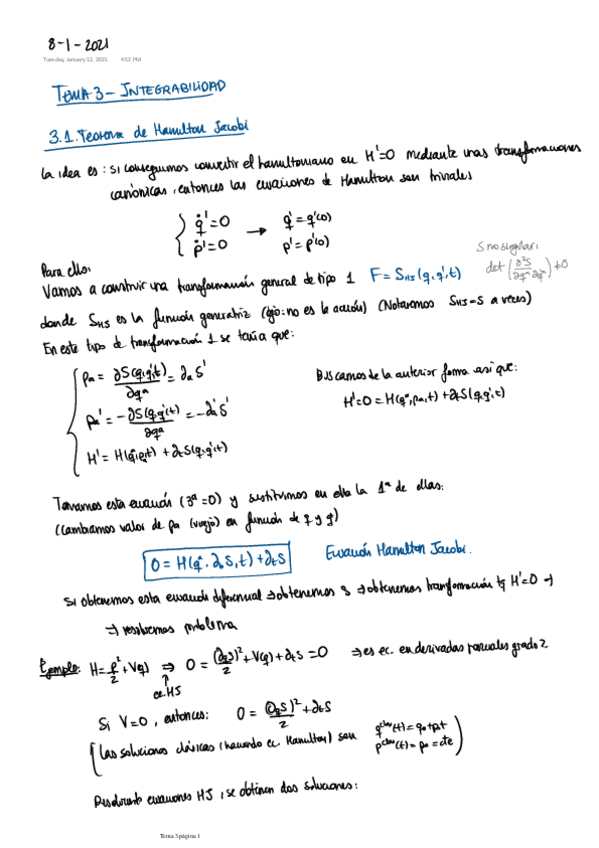 8-1-2021
Tuesday, January 12, 2021 4:52 PM
TEMA 3 - INTEGRABILIDAD
3.1. Teorema de Hamilton Jacobi
La idea es: si conseguimos convertir el hamiltoniano en H'=0 mediante unas transformaciones
canónicas, entonces las ecuaciones de Hamilton son triviales
q̇'=0 → q'=q'(0)
ṗ'=0 p'=p'(0)
Para ello:
S no singular:
det (∂²S/∂q^a ∂q'^a) ≠0
Vamos a construir una transformación general de tipo 1 F = S_HS (q, q', t)
donde S_HS es la función generatriz (ojo: no es la acción) (Notaremos S_HS = S a veces)
En este tipo de transformación 1 se tenía que:
p_a = ∂S(q,q',t)/∂q^a = ∂_a S'
p_a' = -∂S(q,q',t)/∂q^a = -∂_a' S'
H' = H(q,p,t) + ∂_t S(q,q',t)
Buscamos de la anterior forma así que:
H'=0 = H(q^a, p_a, t) + ∂_t S(q,q',t)
Tomamos esta ecuación (3ª=0) y sustituimos en ella la 1ª de ellas:
(Cambiamos valor de pa (viejo) en función de q y q')
0 = H(q^a, ∂_a S, t) + ∂_t S Ecuación Hamilton Jacobi.
Si obtenemos esta ecuación diferencial ⇒ obtenemos S ⇒ obtenemos transformación tq H'=0 ⇒
⇒ resolvemos problema
Ejemplo: H = p²/2 + V(q) ⇒ 0 = (∂_q S)²/2 + V(q) + ∂_t S = 0 ⇒ es ec. en derivadas parciales grado 2
↑
ec. HS
Si V=0, entonces: 0 = (∂_q S)²/2 + ∂_t S
(Las soluciones clásicas (haciendo ec. Hamilton) son q^clas(t) = q_0 + p_0 t
p^clas(t) = p_0 = cte)
Resolviendo ecuaciones HJ, se obtienen dos soluciones:
Tema 3 página 1